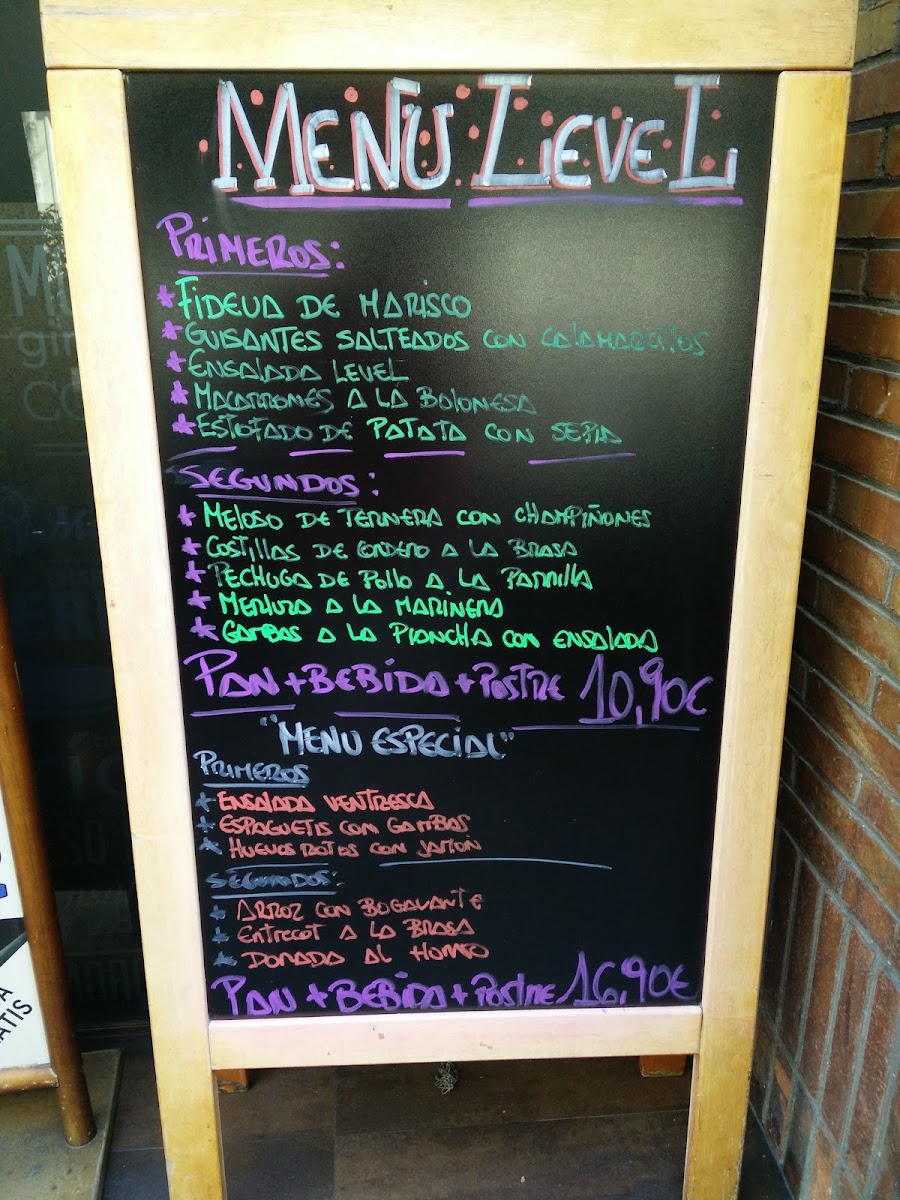 MENU LEVEL
PRIMEROS:
*FIDEUA DE MARISCO
*GUISANTES SALTEADOS CON CALAMARCITOS
*ENSALADA LEVEL
*MACARRONES A LA BOLONESA
*ESTOFADO DE PATATA CON SEPIA
SEGUNDOS:
*MELOSO DE TERNERA CON CHAMPIÑONES
*COSTILLAS DE CORDERO A LA BRASA
*PECHUGA DE POLLO A LA PARRILLA
*MERLUZA A LA MARINERA
*GAMBAS A LA PLANCHA CON ENSALADA
PAN + BEBIDA + POSTRE 10,90€
"MENU ESPECIAL"
PRIMEROS
*ENSALADA VENTRESCA
*ESPAGUETIS CON GAMBAS
*HUEVOS ROTOS CON JAMON
SEGUNDOS:
*ARROZ CON BOGAVANTE
*ENTRECOT A LA BRASA
*DORADA AL HORNO
PAN + BEBIDA + POSTRE 16,90€